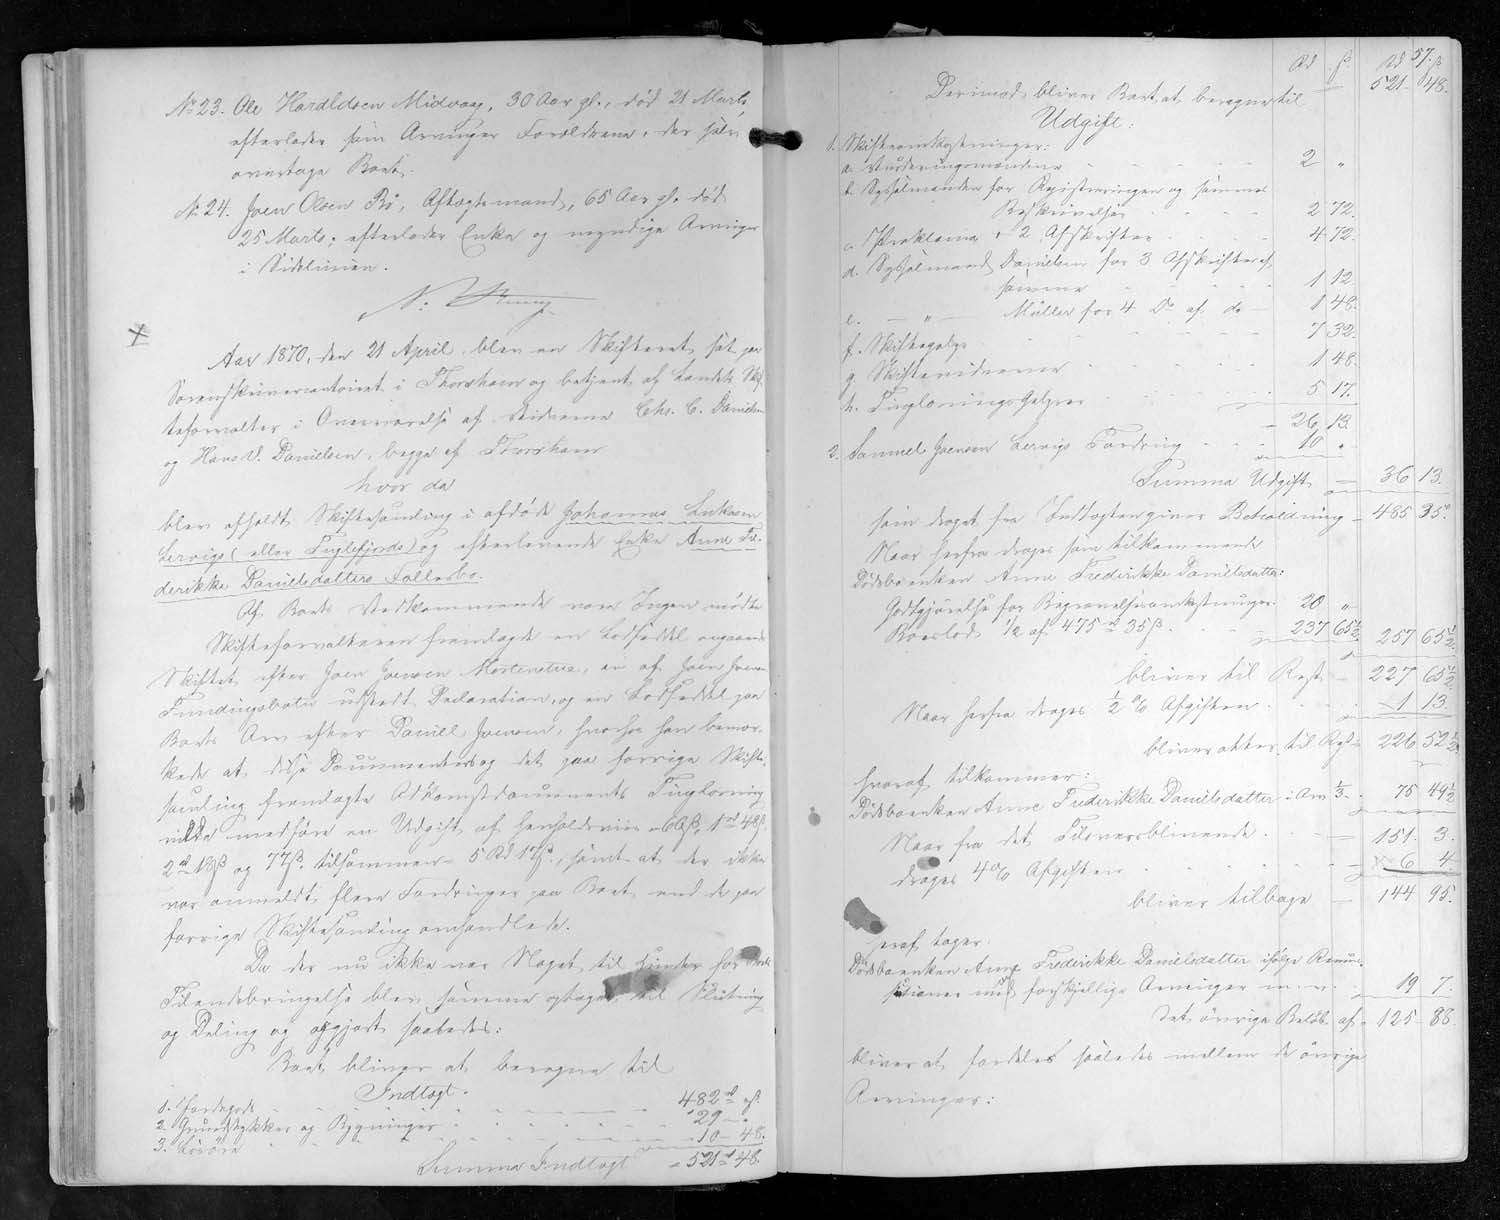 No 23. Ole Haraldsen Midvaag, 30 Aar gl., død 21 Marts,
efterlader som Arvinger Forældrene, der selv
overtage Boet.
No 24. Joen Olsen Bø, Aftægtsmand, 65 Aar gl. død
25 Marts; efterlader Enke og myndige Arvinger
i Sidelinien.
Aar 1870, den 21 April blev en Skifteret sat paa
Sorenskrivercontoiret i Thorshavn og betjent af Landets Skif-
teforvalter i Overværelse af Vidnerne Chr. C. Danielsen
og Hans D. Danielsen, begge af Thorshavn
hvor da
blev afholdt Skiftesamling i afdøde Johannes Lukasen
Lervigs (eller Fuglefjords) og efterlevende Enke Anne Fre-
derikke Danielsdatters Fællesbo.
Af Boets Vedkommende vare Ingen mødte
Skifteforvalteren fremlagde en Lodseddel angaaende
Skiftet efter Joen Joensen Mortensstue, en af Joen Joensen
Fundingsbotn udstedt Declaration, og en Lodseddel paa
Boets Arv efter Daniel Joensen, hvorhos han bemær-
kede at disse Documenter og det paa forrige Skifte-
samling fremlagte Adkomstdocuments Tinglæsning
vilde medføre en Udgift af henholdsviis 60 ß, 1 rd 48 ß
2 rd 18 ß og 77 ß tilsammen 5 Rd 17 ß, samt at der ikke
var anmeldt flere Fordringer paa Boet end de paa
forrige Skiftesamling omhandlede.
Da der nu ikke var Noget til Hinder for Boets
Tilendebringelse blev samme optaget til Slutning
og Deling og opgjort saaledes:
Boet bliver at beregne til
Indtægt.
1. Jordegods 482 rd " ß.
2. Grundstykker og Bygninger 29 - "
3. Løsøre 10 - 48.
Summa Indtægt 521 rd 48.
57.
Rd ß. Rd ß
521 48.
Derimod bliver Boet at beregne til
Udgift:
1. Skifteomkostninger:
a. Vurderingsmændene 2 "
b. Sysselmanden for Registreringen og sammes
Beskrivelse 2 72.
c. 1 Proklama + 2 Afskrifter 4 72.
d. Sysselmand Danielsen for 3 Afskrifter af
samme 1 12.
e. — " — Müller for 4 Do af do 1 48.
f. Skiftegebyr 7 32.
g. Skiftevidnerne 1 48.
h. Tinglæsnings Gebyrer 5 17.
26 13.
2. Samuel Joensen Lervigs Fordring 10 "
Summa Udgift 36 13.
som draget fra Indtægten giver Beholdning 485 35.
Naar herfra drages som tilkommende
Dødsboenken Anne Frederikke Danielsdatter:
Godtgjørelse for Begravelsesomkostninger 20 "
Boeslod 1/2 af 475 rd 35 ß 237 65 1/2 257 65 1/2
bliver til Rest 227 65 1/2
Naar herfra drages 1/2 % Afgiften 1 13.
bliver atter til Rest 226 52 1/2
hvoraf tilkommer:
Dødsboenken Anne Frederikke Danielsdatter i Arv 1/3 75 49 1/2
Naar fra det Tiloversblivende 151 3.
drages 4 % Afgiften 6 4
bliver tilbage 144 95.
heraf tager
Dødsboenken Anne Frederikke Danielsdatter ifølge Renun-
tiationer med forskjellige Arvinger m. v. 19 7.
det øvrige Beløb af 125 88.
bliver at fordeles saaledes mellem de øvrige
Arvinger: